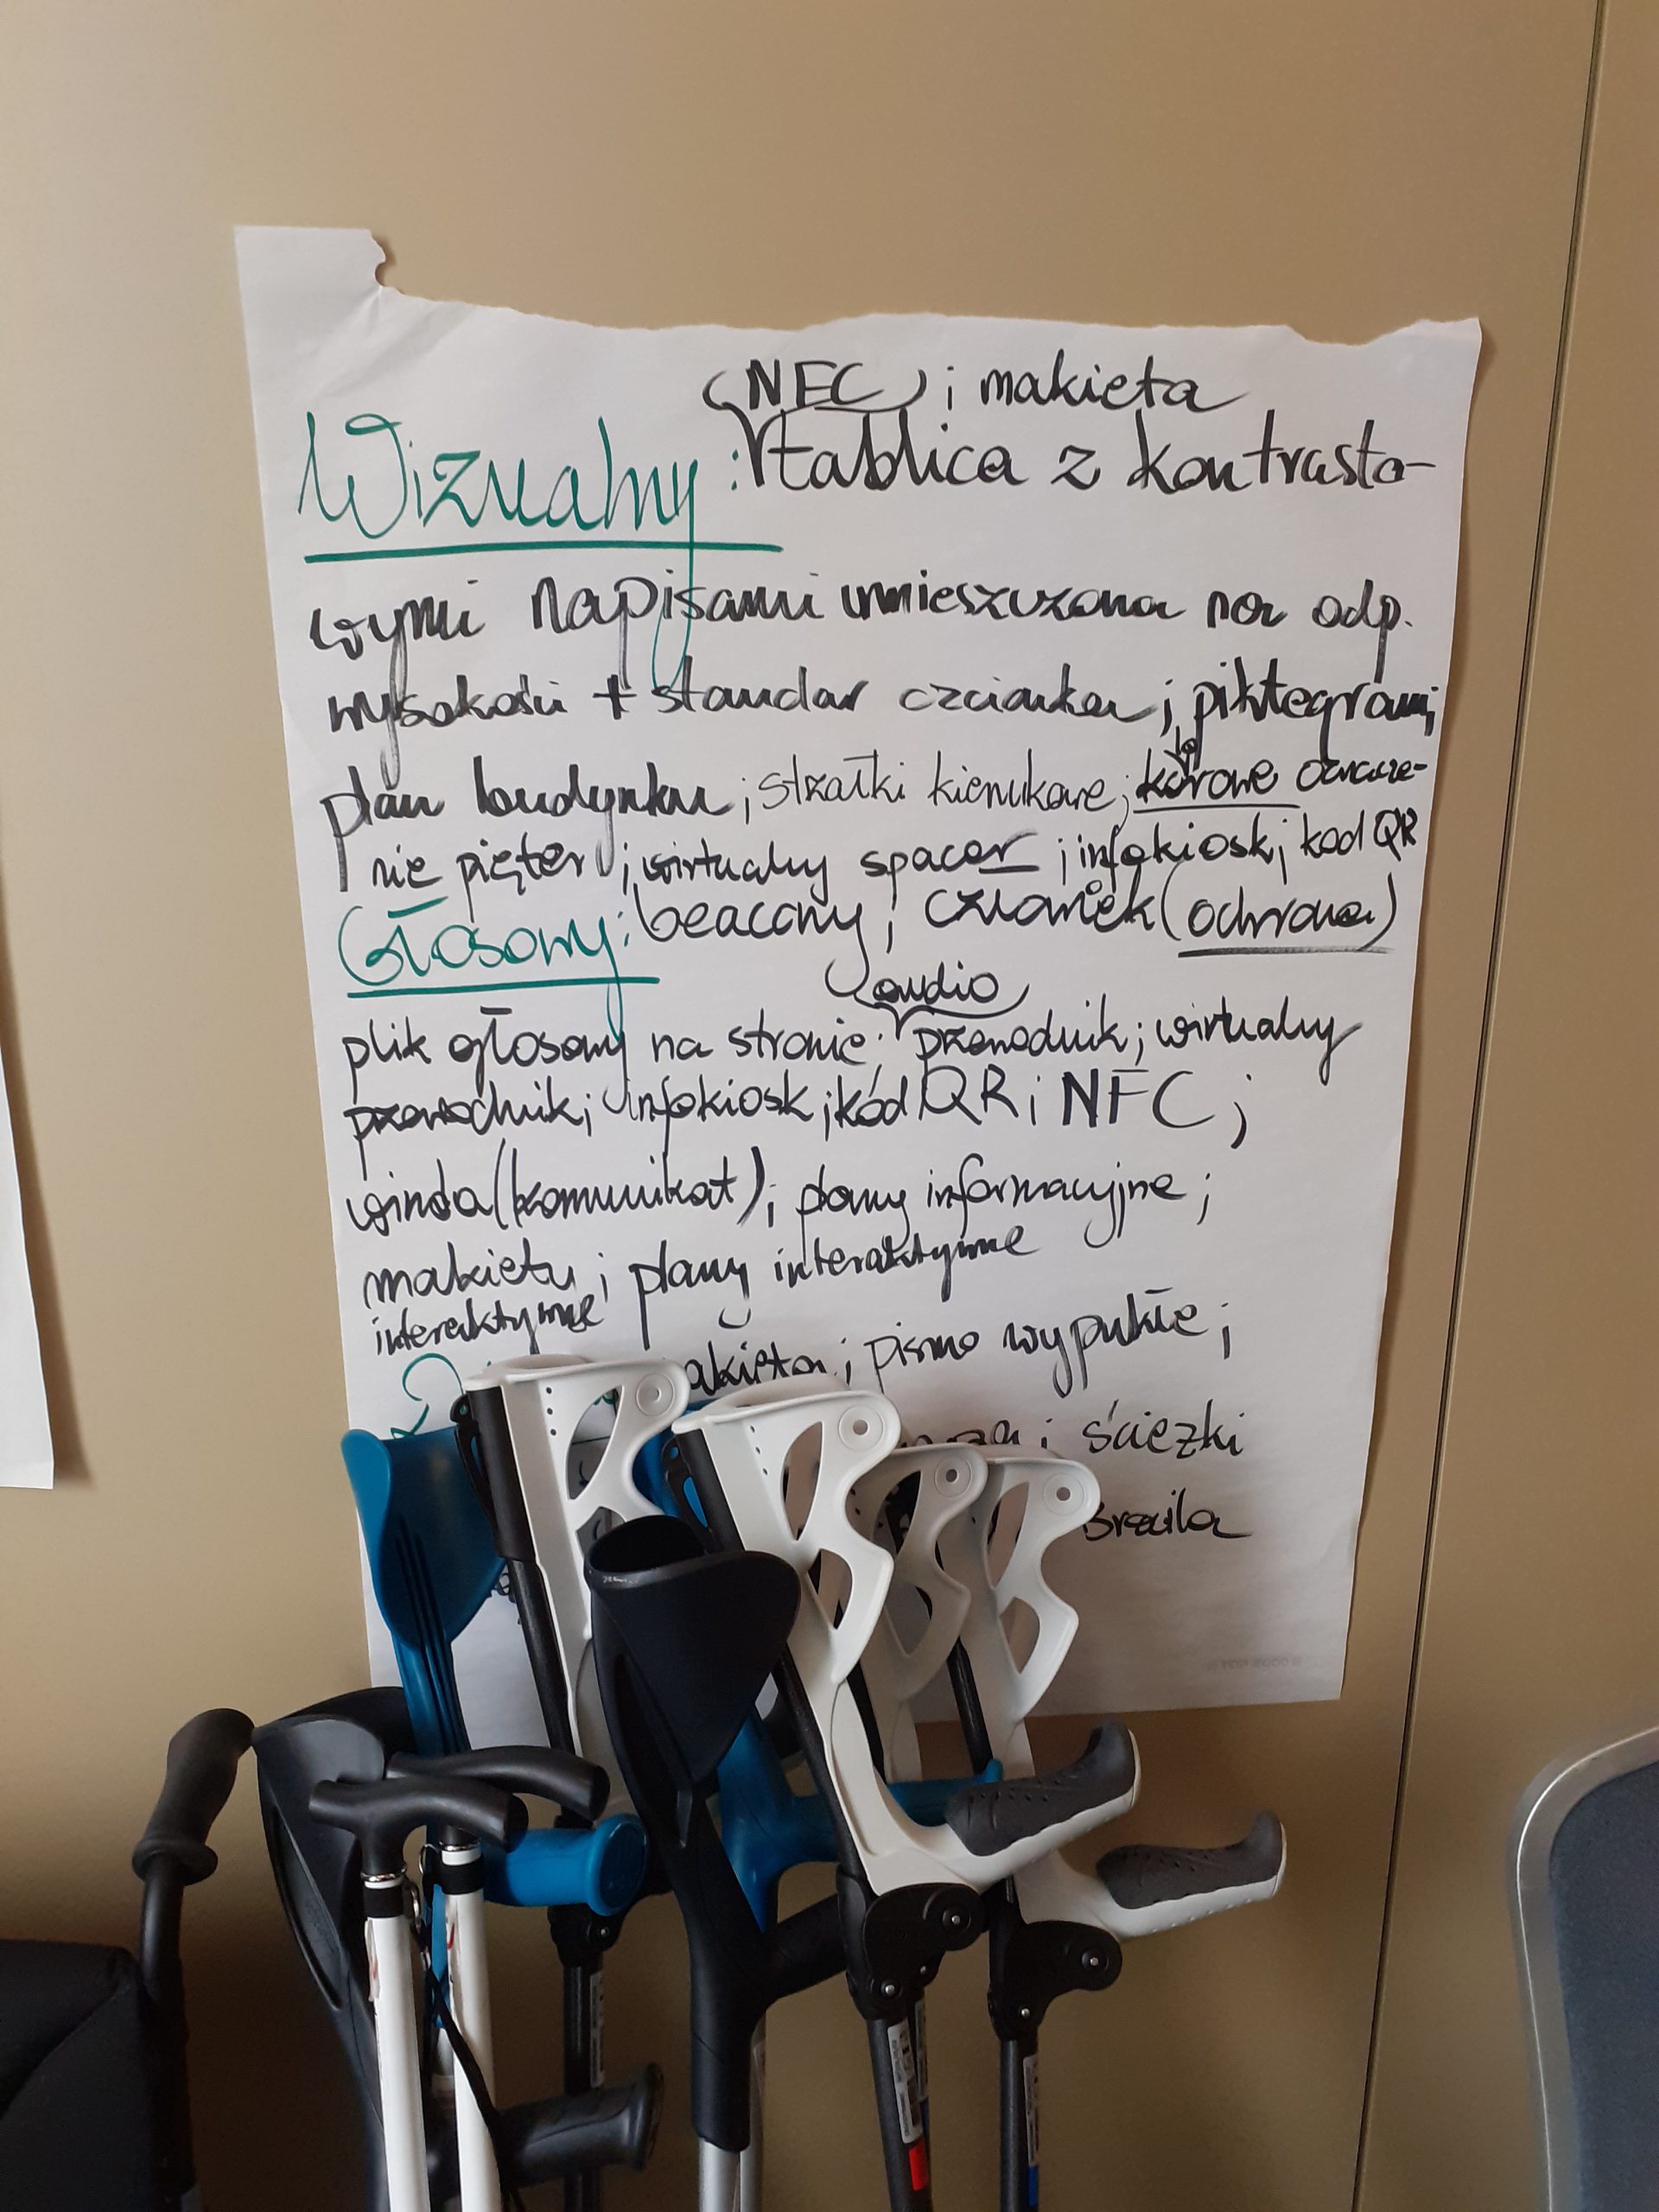 (NFC) ; makieta
Wizualny: tablica z kontrasto-
wymi napisami umieszczona na odp.
wysokości + standar czcionka; piktogramy
plan budynku; strzałki kierunkowe; kolorowe oznacze-
nie pięter; wirtualny spacer; infokiosk; kod QR
Głosowy: beacony; człowiek (ochrona)
audio
plik głosowy na stronie; przewodnik; wirtualny
przewodnik; infokiosk; kód QR i NFC;
winda (komunikat); plany informacyjne;
makiety; plany interaktywne
interaktywne
pismo wypukłe;
ścieżki
Braila